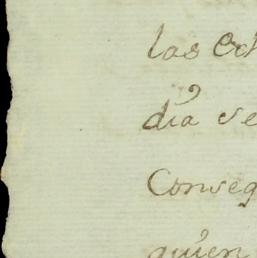 las
dia se
Conseq
quien